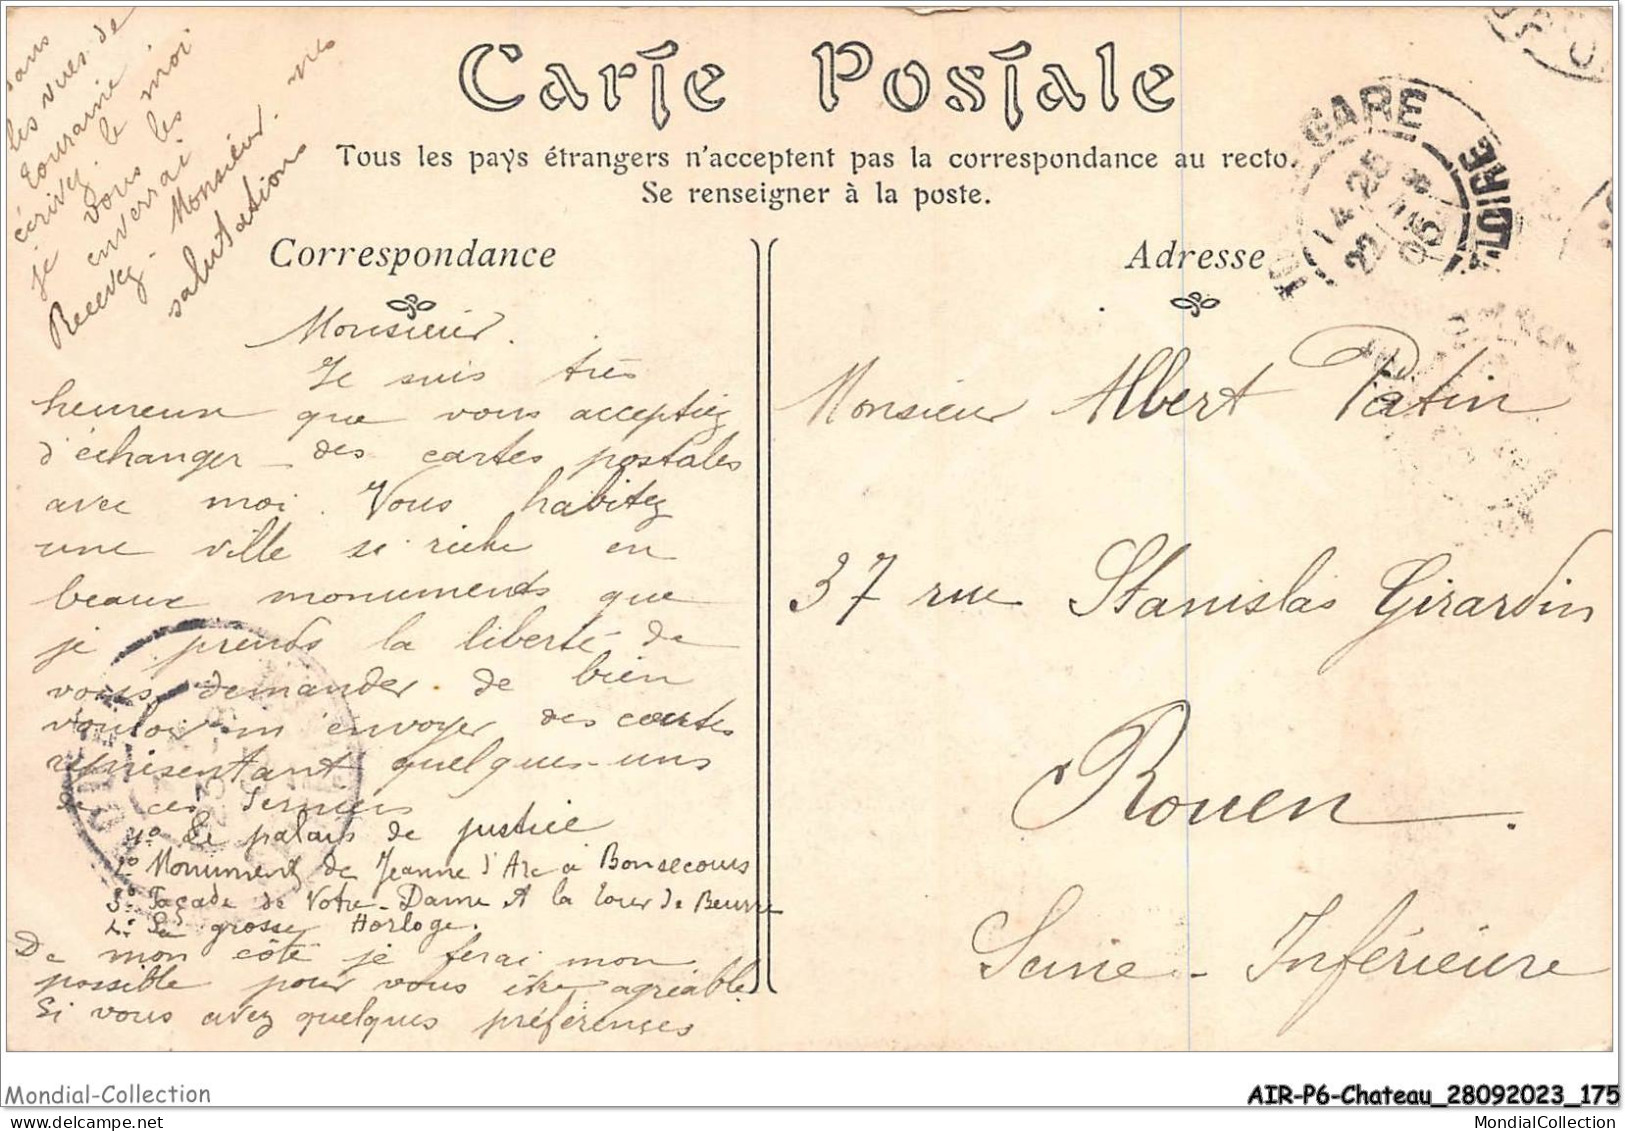 Carte Postale
Tous les pays étrangers n'acceptent pas la correspondance au recto.
Se renseigner à la poste.
Correspondance
Monsieur.
Je suis très
heureux que vous acceptiez
d'échanger des cartes postales
avec moi. Vous habitez
une ville si riche en
beaux monuments que
je prends la liberté de
vous demander de bien
vouloir m'envoyer des cartes
représentant quelques-uns
de ces derniers
1º Le palais de justice
2º Monument de Jeanne d'Arc à Bonsecours
3º Façade de Notre-Dame et la tour de Beurre
4º La grosse Horloge.
De mon côté je ferai mon
possible pour vous être agréable.
Si vous avez quelques préférences
dans
les vues de
Touraine
écrivez le moi
je vous les
enverrai
Recevez Monsieur mes
salutations
Adresse
Monsieur Albert Patin
37 rue Stanislas Girardin
Rouen.
Seine-Inférieure
GARE
14 25
22
05
LOIRE
Mondial-Collection
AIR-P6-Chateau_28092023_175
MondialCollection